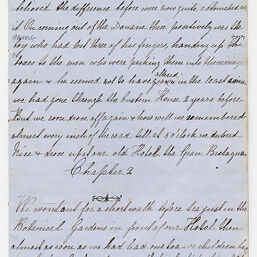 beloved the difference before were now quite astonished
if On coming out of the Douane there positively was the
same
boy who had lost three of his fingers, handing up the
boxes to the men who were packing them into the carriage
again & he seemed not to have grown in the least since
altered
we had gone through the Custom House 2 years before
But we soon drove off again & how well we remembered
almost every inch of the road till at 5 o'clock we entered
Nice & drove up at our old Hotel the Gran Bretagna.
Chapter 2
We went out for a short walk before tea just in the
Botanical Gardens in front of our Hotel then
almost as soon as we had had our tea we children